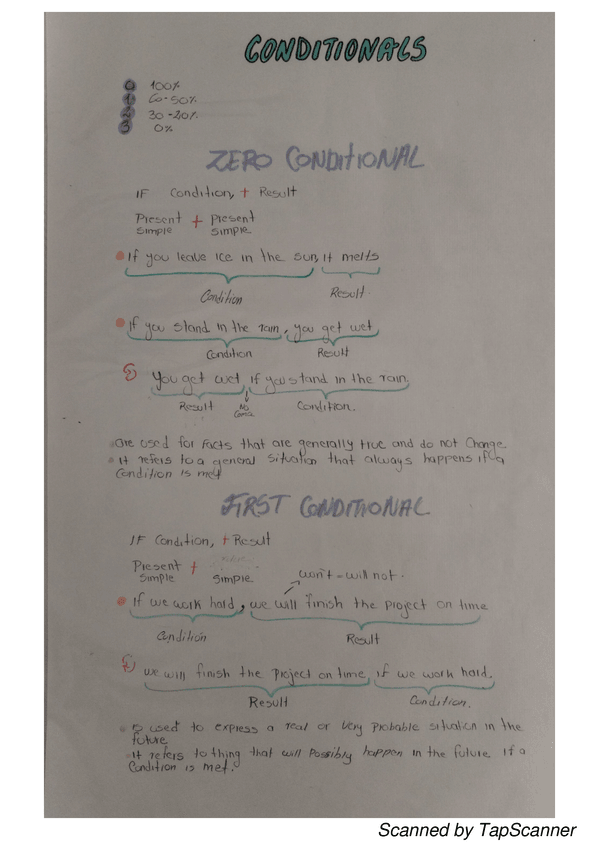 CONDITIONALS
0 100%
1 60-50%
2 30-20%
3 0%
ZERO CONDITIONAL
IF Condition, + Result
Present + Present
Simple Simple
If you leave ice in the sun, it melts
Condition Result
If you stand in the rain, you get wet
Condition Result
You get wet if you stand in the rain.
Result No Condition.
are used for facts that are generally true and do not change
it refers to a general situation that always happens if a
Condition is met
FIRST CONDITIONAL
IF Condition, + Result
Present +
Simple Simple won't = will not.
If we work hard, we will finish the project on time
Condition Result
we will finish the project on time, if we work hard.
Result Condition.
is used to express a real or very probable situation in the
future
it refers to thing that will possibly happen in the future if a
Condition is met.
Scanned by TapScanner